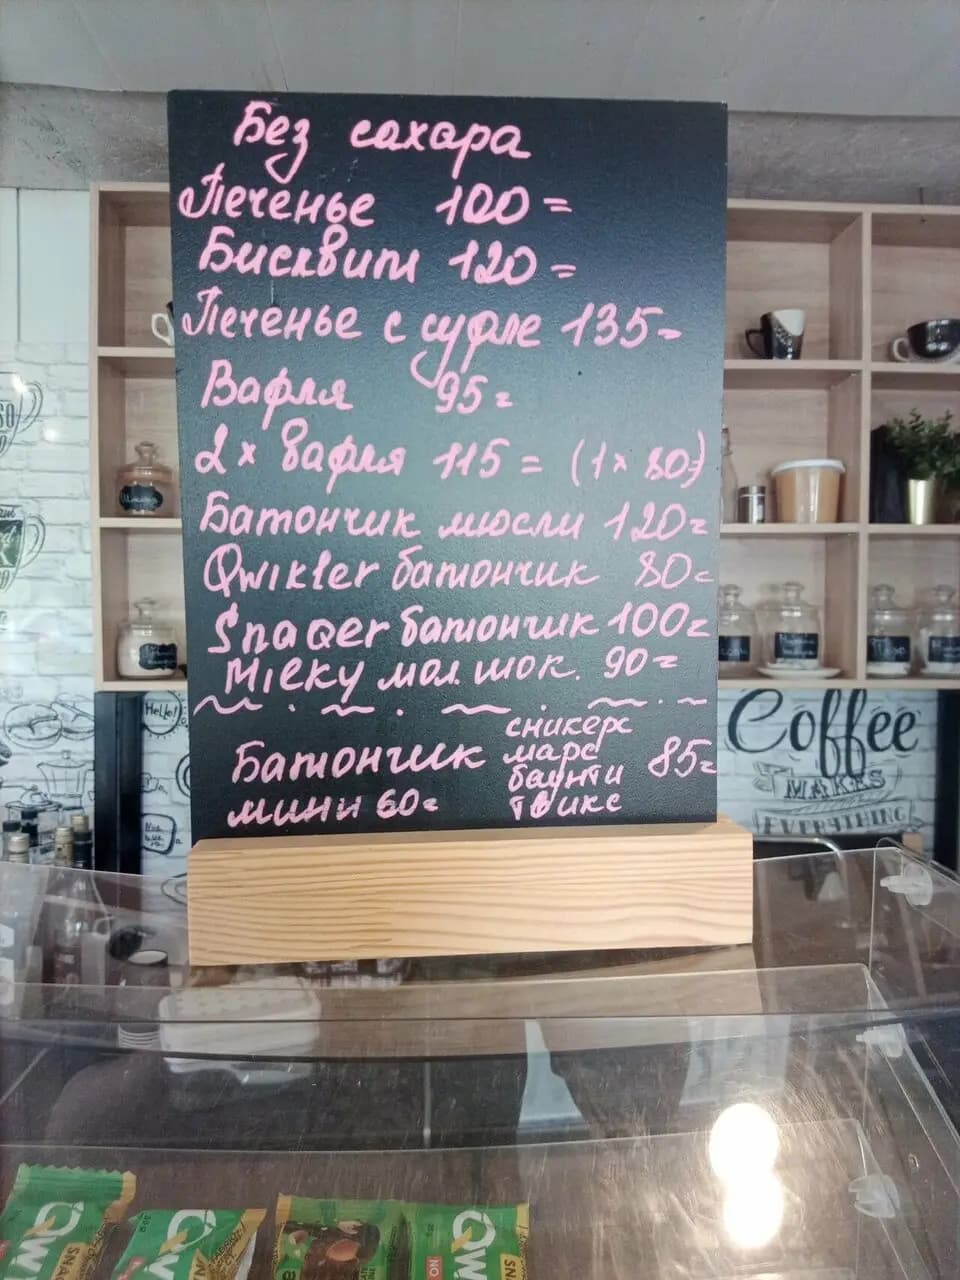 Без сахара
Печенье 100=
Бисквит 120=
Печенье с суфле 135=
Вафля 95=
2x вафля 115= (1x 80=)
Батончик мюсли 120=
Qwikler батончик 80=
Snaqer батончик 100=
Mleky мол. шок. 90=
Батончик сникерс 85=
марс
баунти
мини 60= твикс
Hello!
Coffee
MAKES
EVERYTHING
QW
SNA
QW
SNA
NO